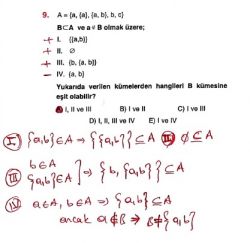 9. A = {a, {a}, {a, b}, b, c}
B⊂A ve a∉B olmak üzere;
+ I. {{a,b}}
+ II. ∅
+ III. {b, {a, b}}
− IV. {a, b}
Yukarıda verilen kümelerden hangileri B kümesine
eşit olabilir?
A) I, II ve III B) I ve II C) I ve III
D) I, II, III ve IV E) I ve IV
I {a,b}∈A ⇒ {{a,b}}⊆A II ∅⊆A
III b∈A
{a,b}∈A ⇒ {b, {a,b}}⊆A
IV a∈A, b∈A ⇒ {a,b}⊆A
ancak a∉B ⇒ B≠{a,b}